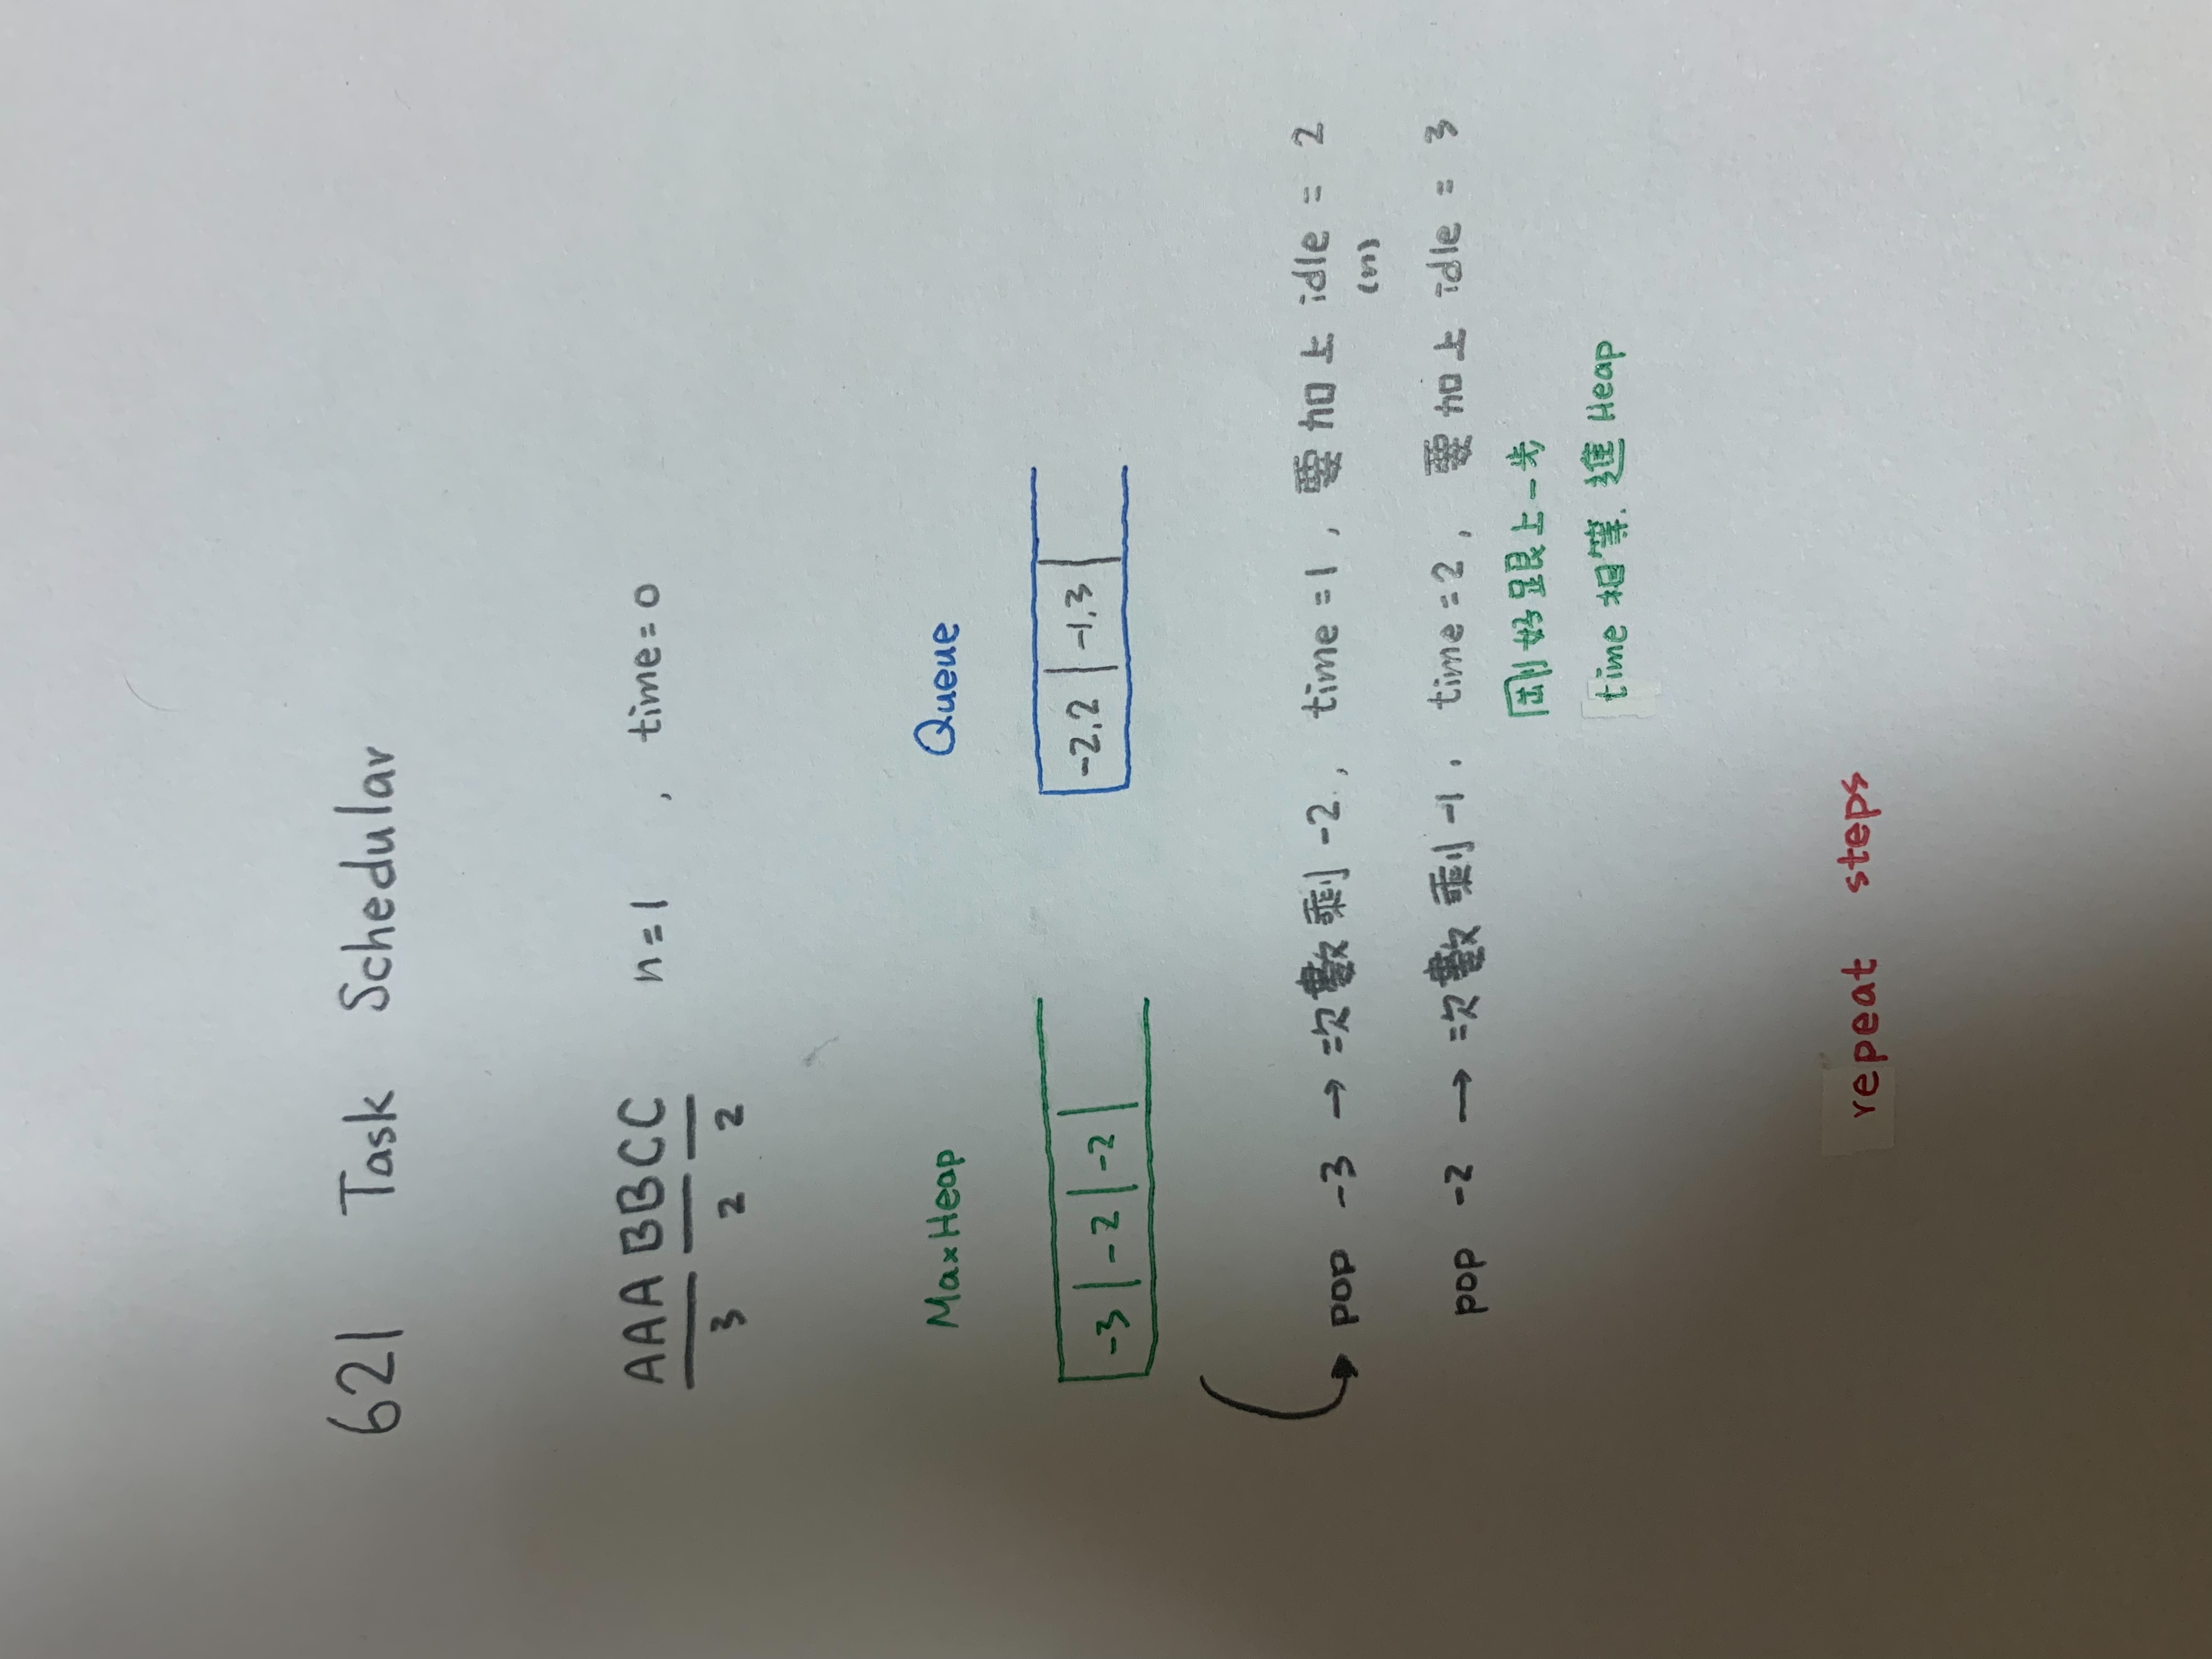 621 Task Schedular
AAA BB CC n=1 , time=0
3 2 2
MaxHeap Queue
-3 -2 -2 -2,2 -1,3
pop -3 → 次數剩 -2, time=1, 要加上 idle = 2
(n)
pop -2 → 次數剩 -1, time=2, 要加上 idle = 3
剛好跟上一步
time 相等. 進 Heap
repeat steps